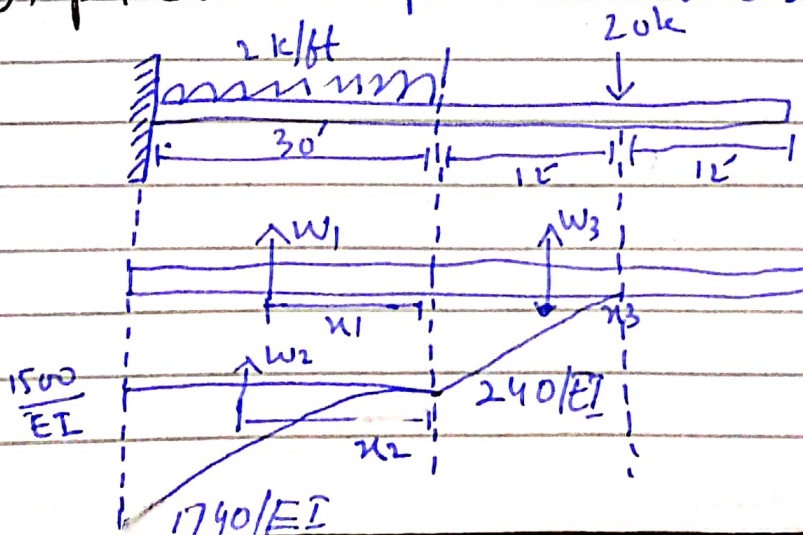 20k
2 k/ft
30'
12'
12'
W1
W3
x1
x3
W2
1500/EI
240/EI
x2
1740/EI